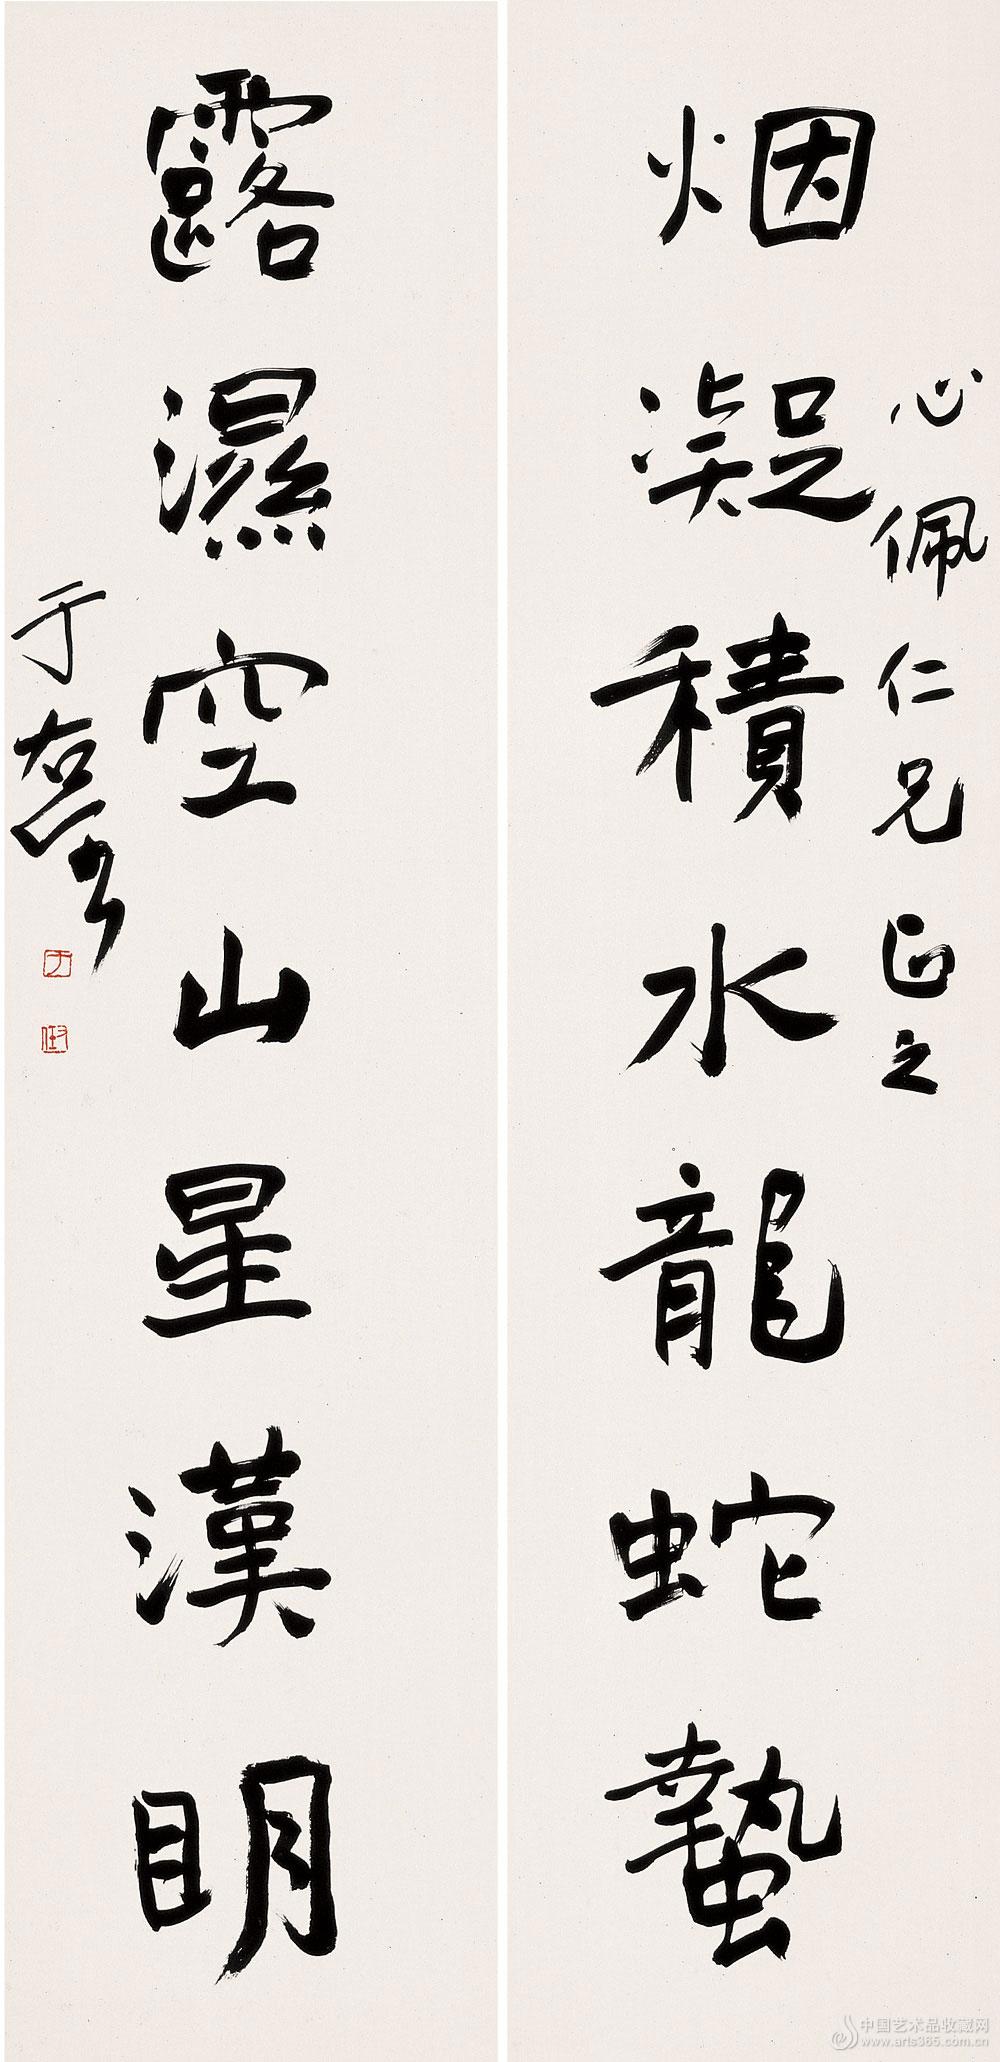 烟凝積水龍蛇蟄
心佩仁兄正之
露濕空山星漢明
于右任
中国艺术品收藏网
www.arts365.com.cn